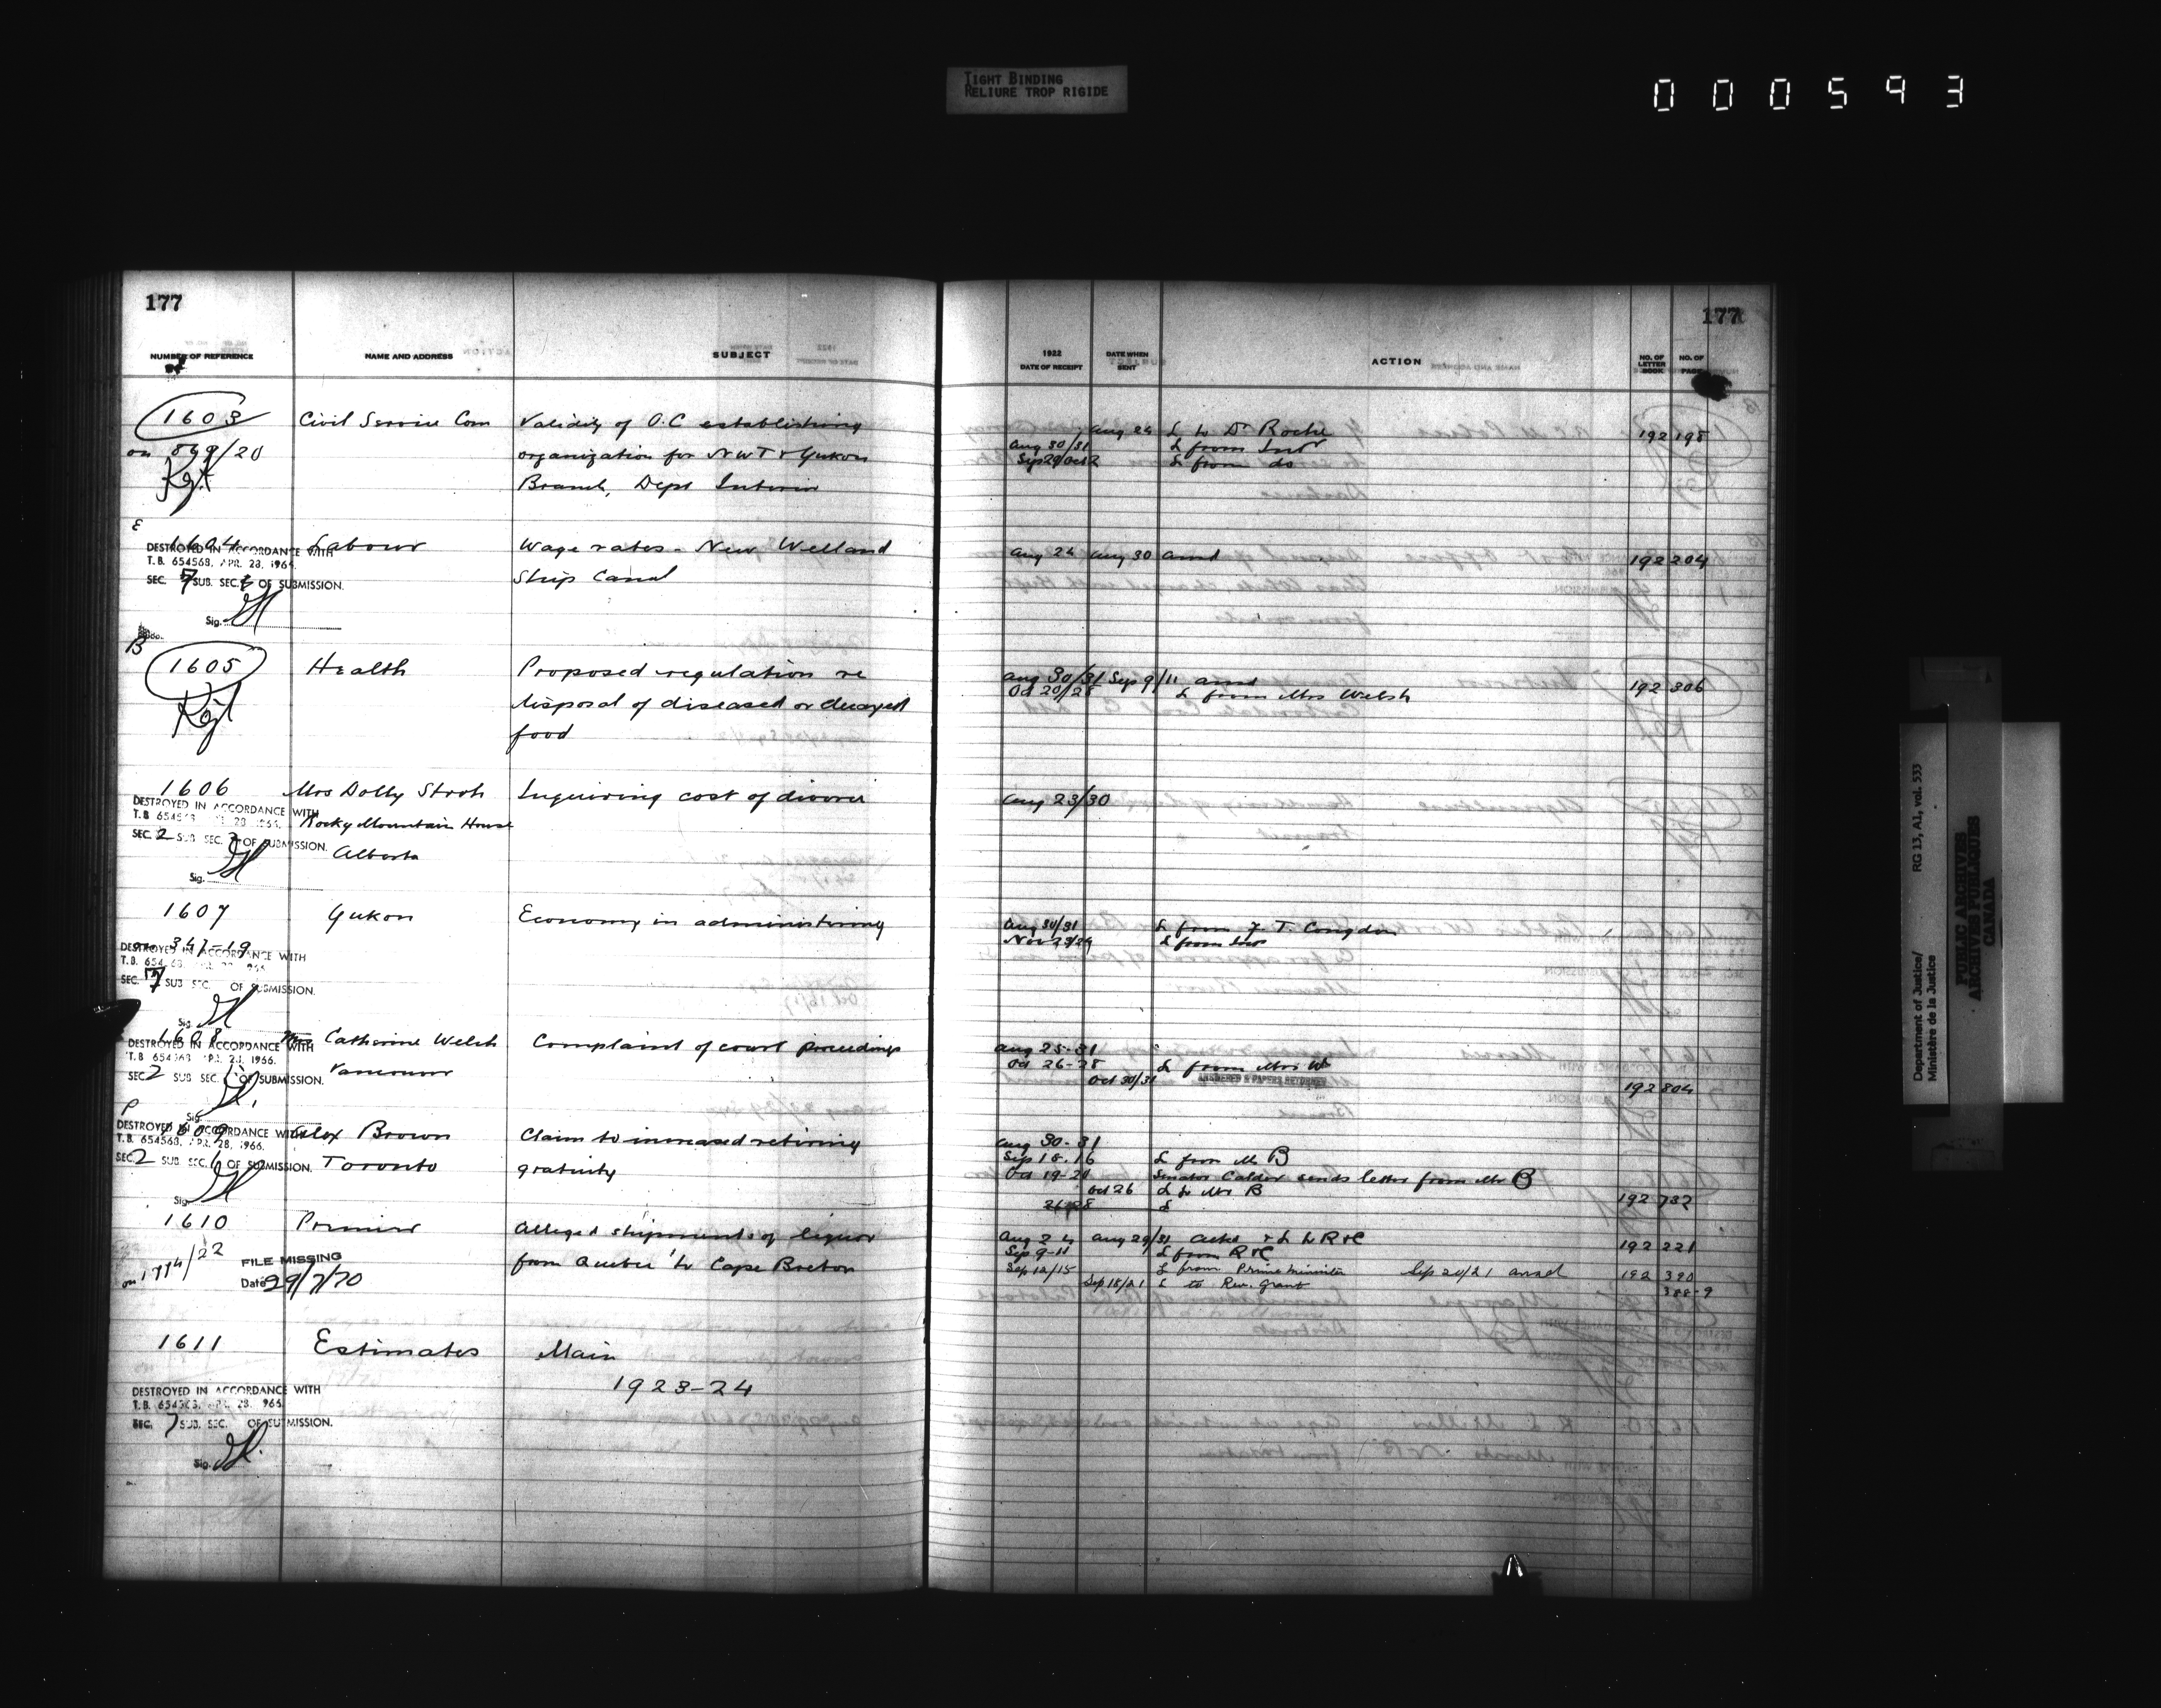 TIGHT BINDING
RELIURE TROP RIGIDE
000593
177
177
NUMBER OF REFERENCE NAME AND ADDRESS SUBJECT 1922 DATE OF RECEIPT DATE WHEN SENT ACTION NO. OF LETTER BOOK NO. OF PAGE
1603 Civil Service Com Validity of O.C establishing Aug 24 L to Dr Roche 192 198
on 899/20 organization for NWT & Yukon Aug 30/31 L from Intr
Branch, Dept Interior Sep 29/Oct 2 L from do
E
1604 Labour Wage rates - New Welland Aug 24 Aug 30 ansd 192 204
DESTROYED IN ACCORDANCE WITH
T.B. 654568, APR. 28, 1966. Ship Canal
SEC. 7 SUB. SEC. OF SUBMISSION.
Sig.
B
1605 Health Proposed regulation re Aug 30/31 Sep 9/11 ansd 192 306
Oct 20/28 L from Mrs Welsh
disposal of diseased or decayed
food
1606 Mrs Dolly Stroh Inquiring cost of divorce Aug 23/30
DESTROYED IN ACCORDANCE WITH
T.B. 654568 APR. 28 1966. Rocky Mountain House
SEC. 2 SUB SEC. 3 OF SUBMISSION.
Alberta
Sig.
1607 Yukon Economy in administering Aug 30/31 L from F. T. Congdon
on 341-19 Nov 23/24 L from Intr
DESTROYED IN ACCORDANCE WITH
T.B. 654568 APR. 28 1966
SEC. 7 SUB SEC. OF SUBMISSION.
Sig.
1608 Mrs Catherine Welsh Complaint of court proceedings Aug 25-31
DESTROYED IN ACCORDANCE WITH
T.B 654568 APR. 28, 1966. Vancouver Oct 26-28 L from Mrs W
SEC 2 SUB SEC. OF SUBMISSION. Oct 30/31 ANSWERED & PAPERS RETURNED 192 804
Sig.
P
1609 Alex Brown Claim to increased retiring Aug 30-31
DESTROYED IN ACCORDANCE WITH
T.B. 654568, APR. 28, 1966.
SEC 2 SUB SEC. OF SUBMISSION. Toronto gratuity Sep 18-16 L from Mr B
Oct 19-20 Senator Calder sends letter from Mr B
Oct 26 L to Mr B 192 732
Sig.
1610 Premier Alleged shipments of liquor Aug 24 Aug 29/31 Acked & L to R & C 192 221
from Quebec to Cape Breton Sep 9-11 L from R & C
FILE MISSING
Date 29/7/70 Sep 12/15 L from Prime Minister Sep 20/21 ansd 192 390
Sep 18/21 L to Rev. Grant 388-9
1611 Estimates Main
1923-24
DESTROYED IN ACCORDANCE WITH
T.B. 654568, APR. 28, 1966
SEC. 7 SUB. SEC. OF SUBMISSION.
Sig.
Department of Justice/ RG 13, A1, vol. 533
Ministère de la Justice
PUBLIC ARCHIVES
ARCHIVES PUBLIQUES
CANADA